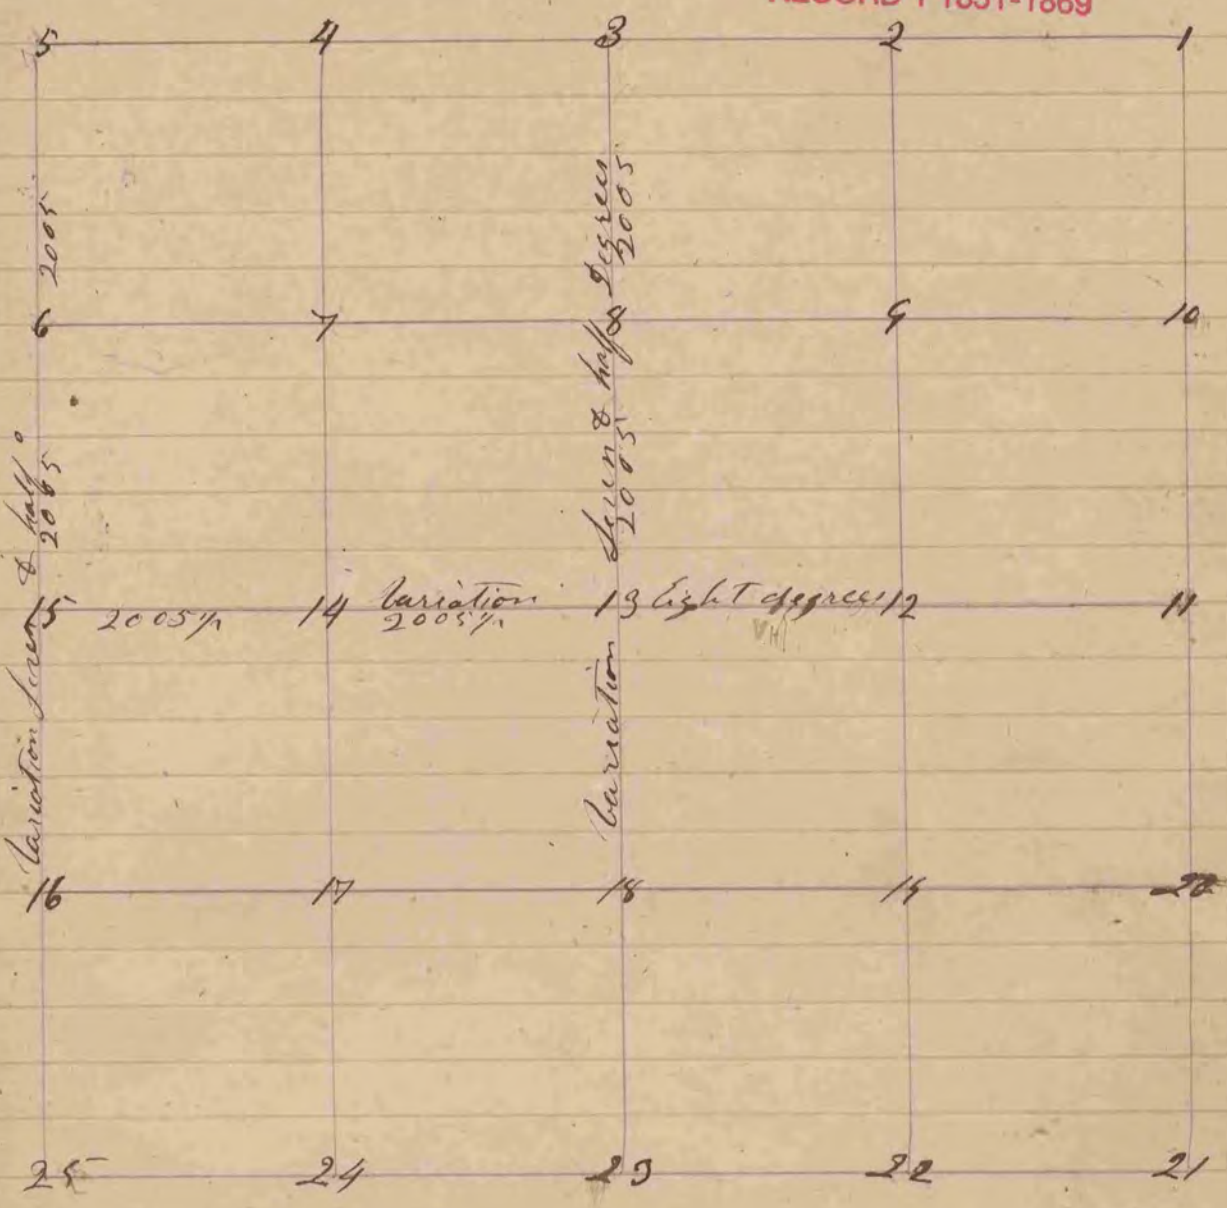 RECORD 1 1851-1869
5 4 3 2 1
2005
Degrees
2005
6 7 8 9 10
Variation Seven & half °
2005
Seven & half
2005
15 2005 14 Variation 13 Eight degrees 12 11
2005
Variation
16 17 18 19 20
25 24 23 22 21